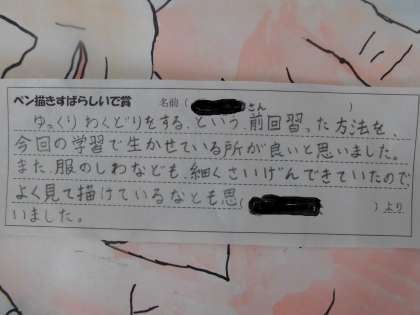 ペン描きすばらしいで賞 名前( さん )
ゆっくりわくどりをする、という、前回習った方法を、
今回の学習で生かせている所が良いと思いました。
また、服のしわなども、細くさいげんできていたので、
よく見て描けているなとも思
いました。 ( )より